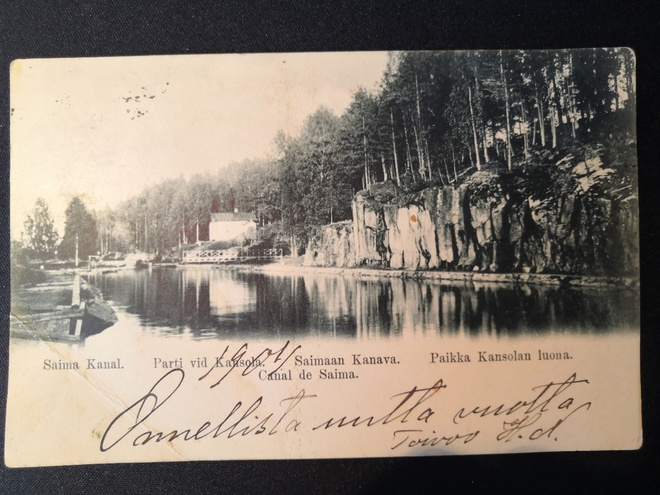 Saima Kanal. Parti vid Kansola. Saimaan Kanava. Paikka Kansolan luona.
Canal de Saima.
1904
Onnellista uutta vuotta
Toivoo H. J.